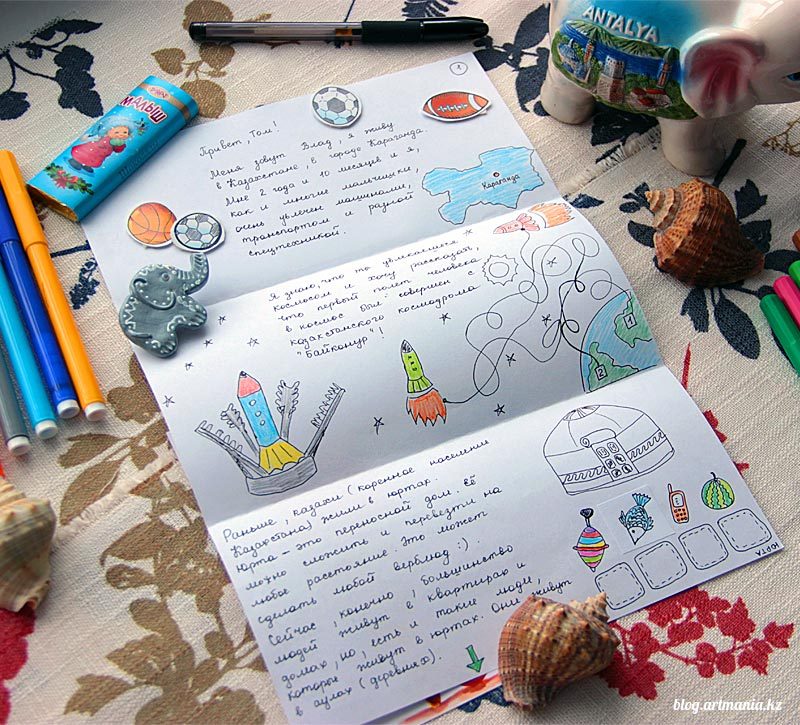 ANTALYA
МАЛЫШ
Привет, Том!
Меня зовут Влад, я живу
в Казахстане, в городе Караганда.
Мне 2 года и 10 месяцев и я,
как и многие мальчишки,
очень увлечен машинами,
транспортом и разной
спецтехникой.
Караганда
Я знаю, что ты увлекаешься
космосом и хочу рассказать,
что первый полет человека
в космос был совершен с
казахстанского космодрома
"Байконур"!
1
2
Раньше, казахи (коренное население
Казахстана) жили в юртах.
Юрта – это переносной дом. Её
можно сложить и перевезти на
любое расстояние. Это может
сделать любой верблюд :).
Сейчас, конечно, большинство
людей живут в квартирах и
домах, но, есть и такие люди,
которые живут в юртах. Они живут
в аулах (деревнях).
ЮРТА
blog.artmania.kz